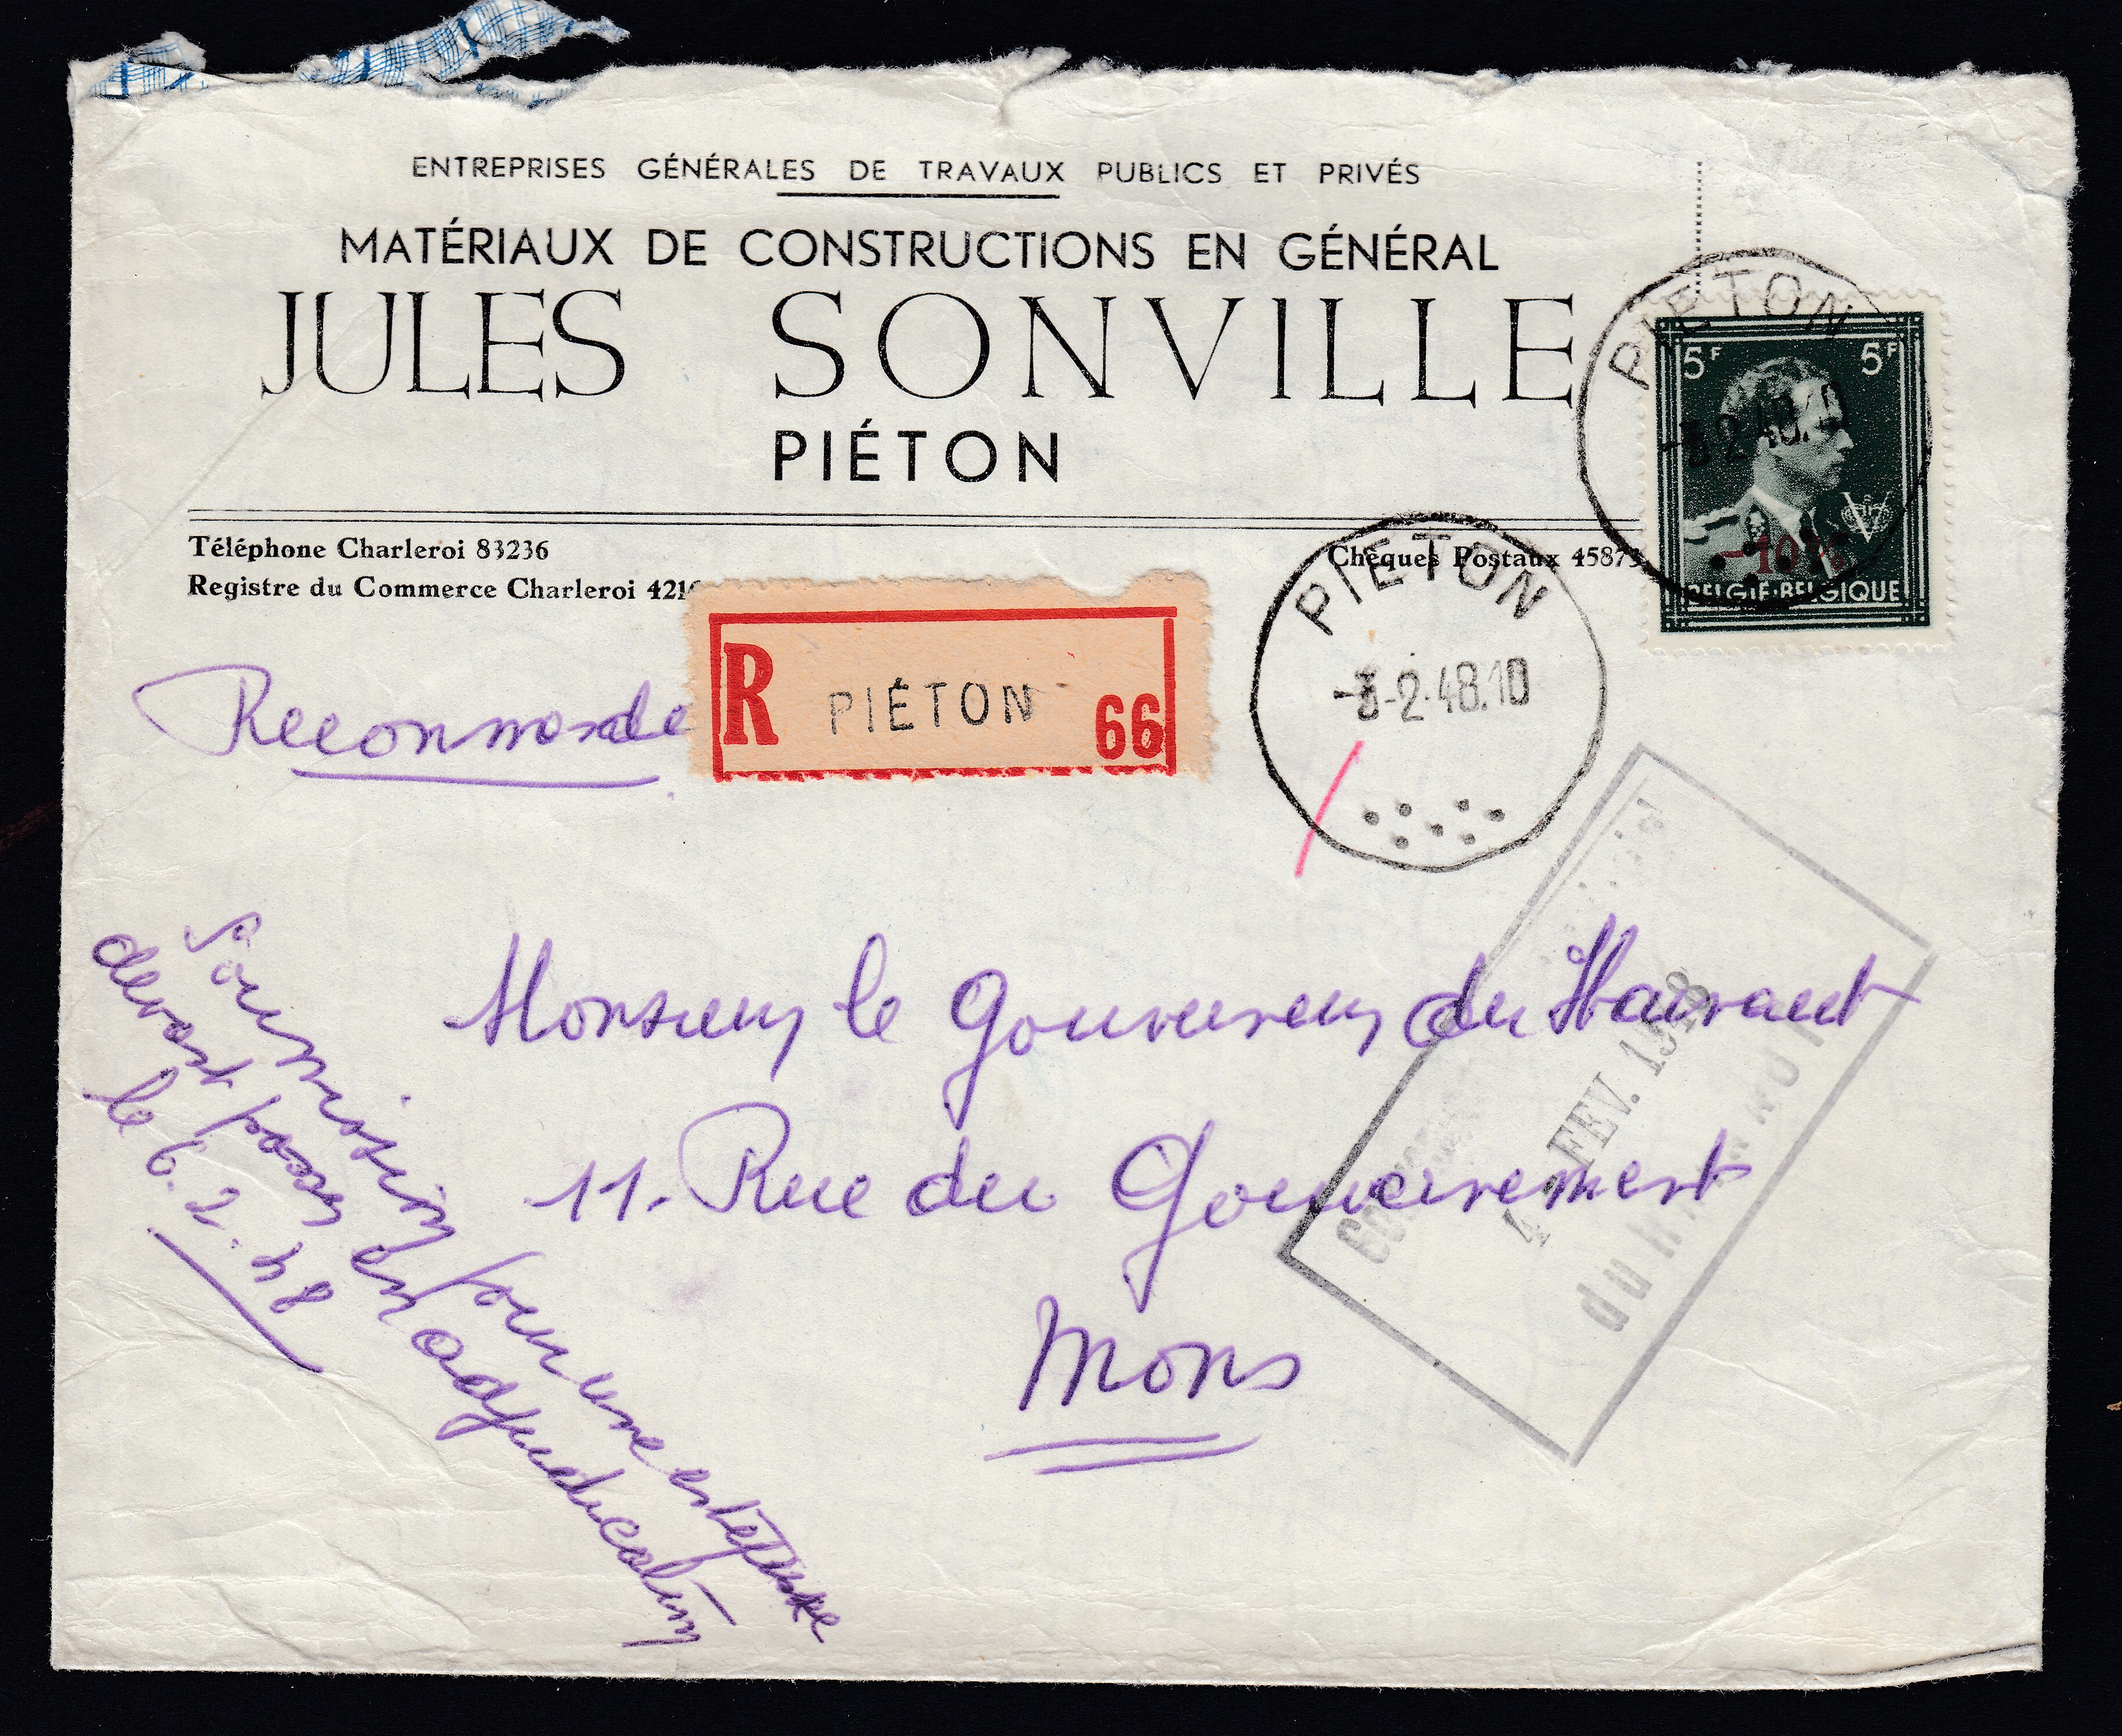 ENTREPRISES GÉNÉRALES DE TRAVAUX PUBLICS ET PRIVÉS
MATÉRIAUX DE CONSTRUCTIONS EN GÉNÉRAL
JULES SONVILLE
PIÉTON
Téléphone Charleroi 83236
Chèques Postaux 45873
Registre du Commerce Charleroi 421
PIETON
5F 5F
-10%
BELGIE·BELGIQUE
PIETON
-3-2-48.10
Recommande
R PIÉTON 66
Monsieur le Gouverneur du Hainaut
11. Rue du Gouvernement
Mons
Soumission pour une entreprise
devant passer en adjudication
le 6.2.48
4 FEV. 1948
du